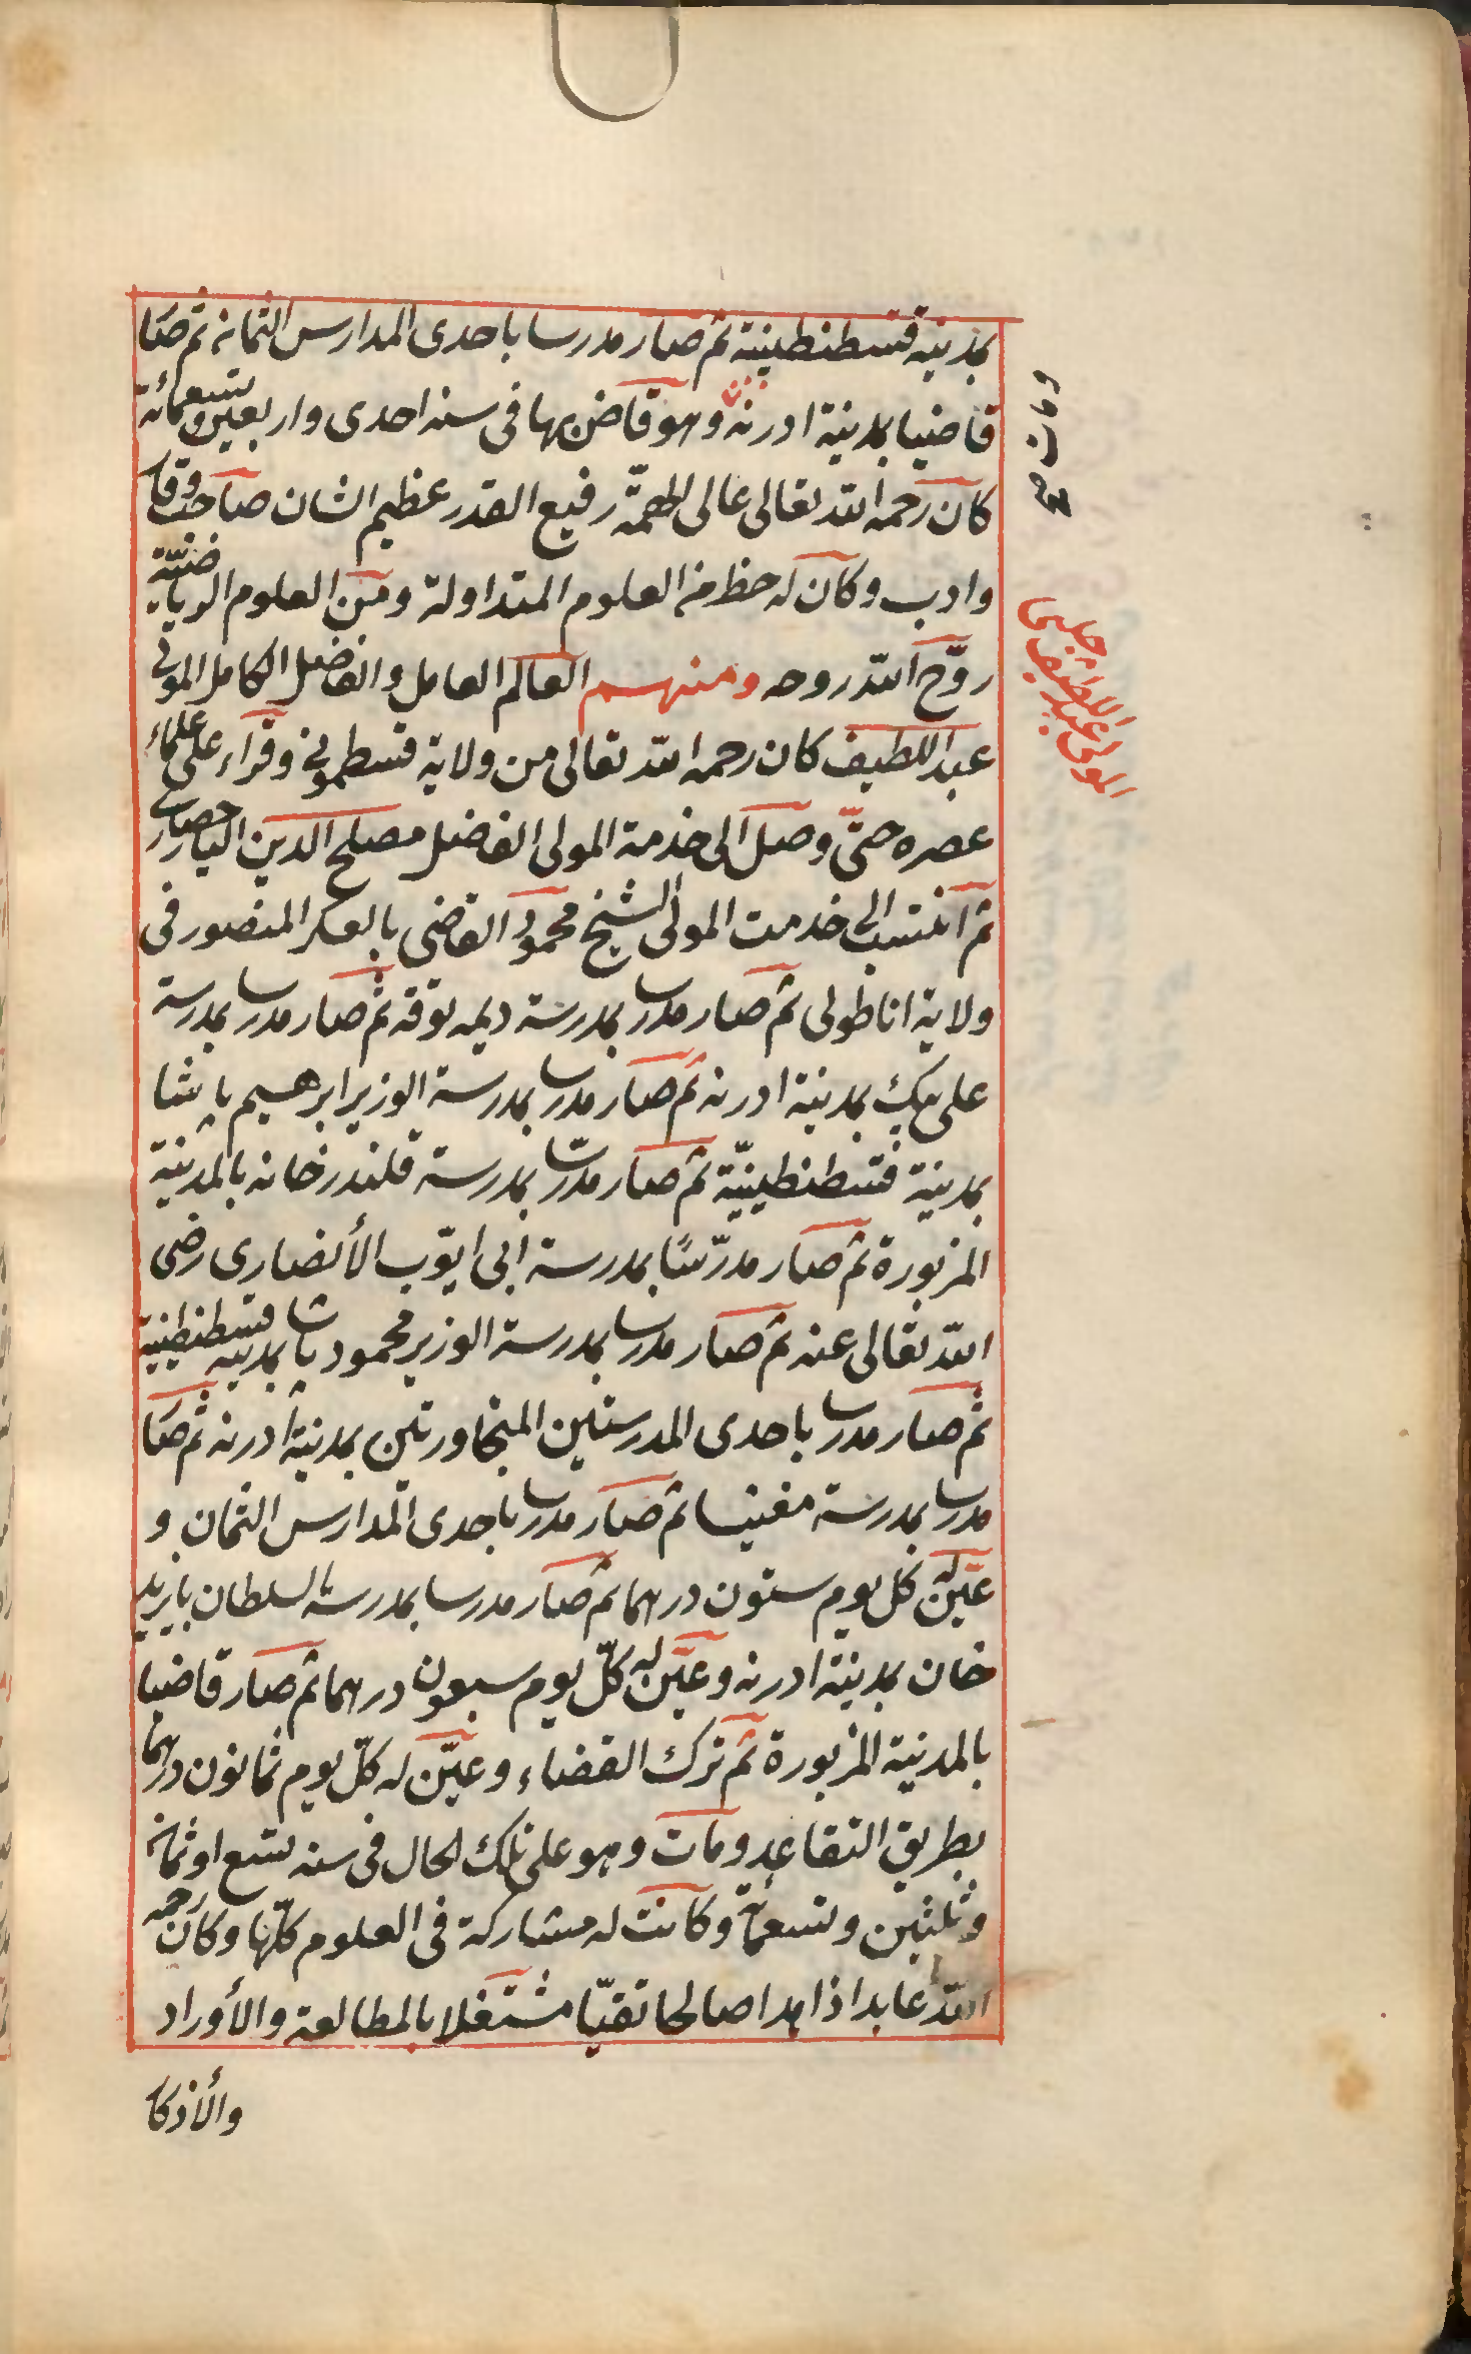 بمدينة قسطنطينية ثم صار مدرسا باحدى المدارس الثمانه ثم صا
قاضيا بمدينة ادرنه وهو قاض بها فى سنه احدى واربعين وتسعمائة
كان رحمه الله تعالى عالى الهمّة رفيع القدر عظيم الشان صاحب وقا
وادب وكان له حظ من العلوم المتداولة ومن العلوم الرياضيّة
روّح الله روحه ومنهم العالم العامل والفاضل الكامل المولى
عبد اللطيف كان رحمه الله تعالى من ولاية قسطمونى وقراء على علماء
عصره حتّى وصل الى خدمة المولى الفاضل مصلح الدين اليارحصارى
ثم انتسب الى خدمت المولى الشيخ محمود القاضى بالعسكر المنصور فى
ولاية اناطولى ثم صار مدرسا بمدرسة ديمه توقه ثم صار مدرسا بمدرسة
على بيك بمدينة ادرنه ثم صار مدرسا بمدرسة الوزير ابرهيم پاشا
بمدينة قسطنطينيّة ثم صار مدرّسا بمدرسة قلندر خانه بالمدينة
المزبورة ثم صار مدرّسًا بمدرسة ابى ايّوب الأنصارى رضى
الله تعالى عنه ثم صار مدرسا بمدرسة الوزير محمود پاشا بمدينة قسطنطينية
ثم صار مدرسا باحدى المدرستين المتجاورتين بمدينة أدرنه ثم صا
مدرسا بمدرسة مغنيسا ثم صار مدرسا باحدى المدارس الثمان و
عيّن له كل يوم ستون درهما ثم صار مدرسا بمدرسة السلطان بايزيد
خان بمدينة ادرنه وعيّن له كلّ يوم سبعون درهما ثم صار قاضيا
بالمدينة المزبورة ثم ترك القضاء وعيّن له كلّ يوم ثمانون درهما
بطريق التقاعد ومات وهو على تلك الحال فى سنه تسع اوثمان
وثلثين وتسعمائة وكانت له مشاركة فى العلوم كلّها وكان رحمه
الله عابدا ذاهدا صالحا تقيّا مشتغلا بالمطالعة والأوراد
والأذكا
ومات
صح
المولى عبد اللطيف چلبى